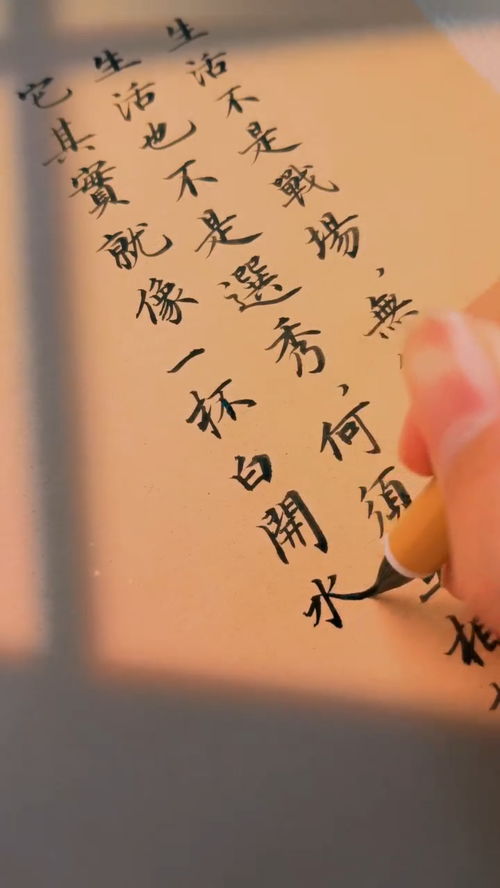 生活不是戰場，無
生活也不是選秀，何須
它其實就像一杯白開水